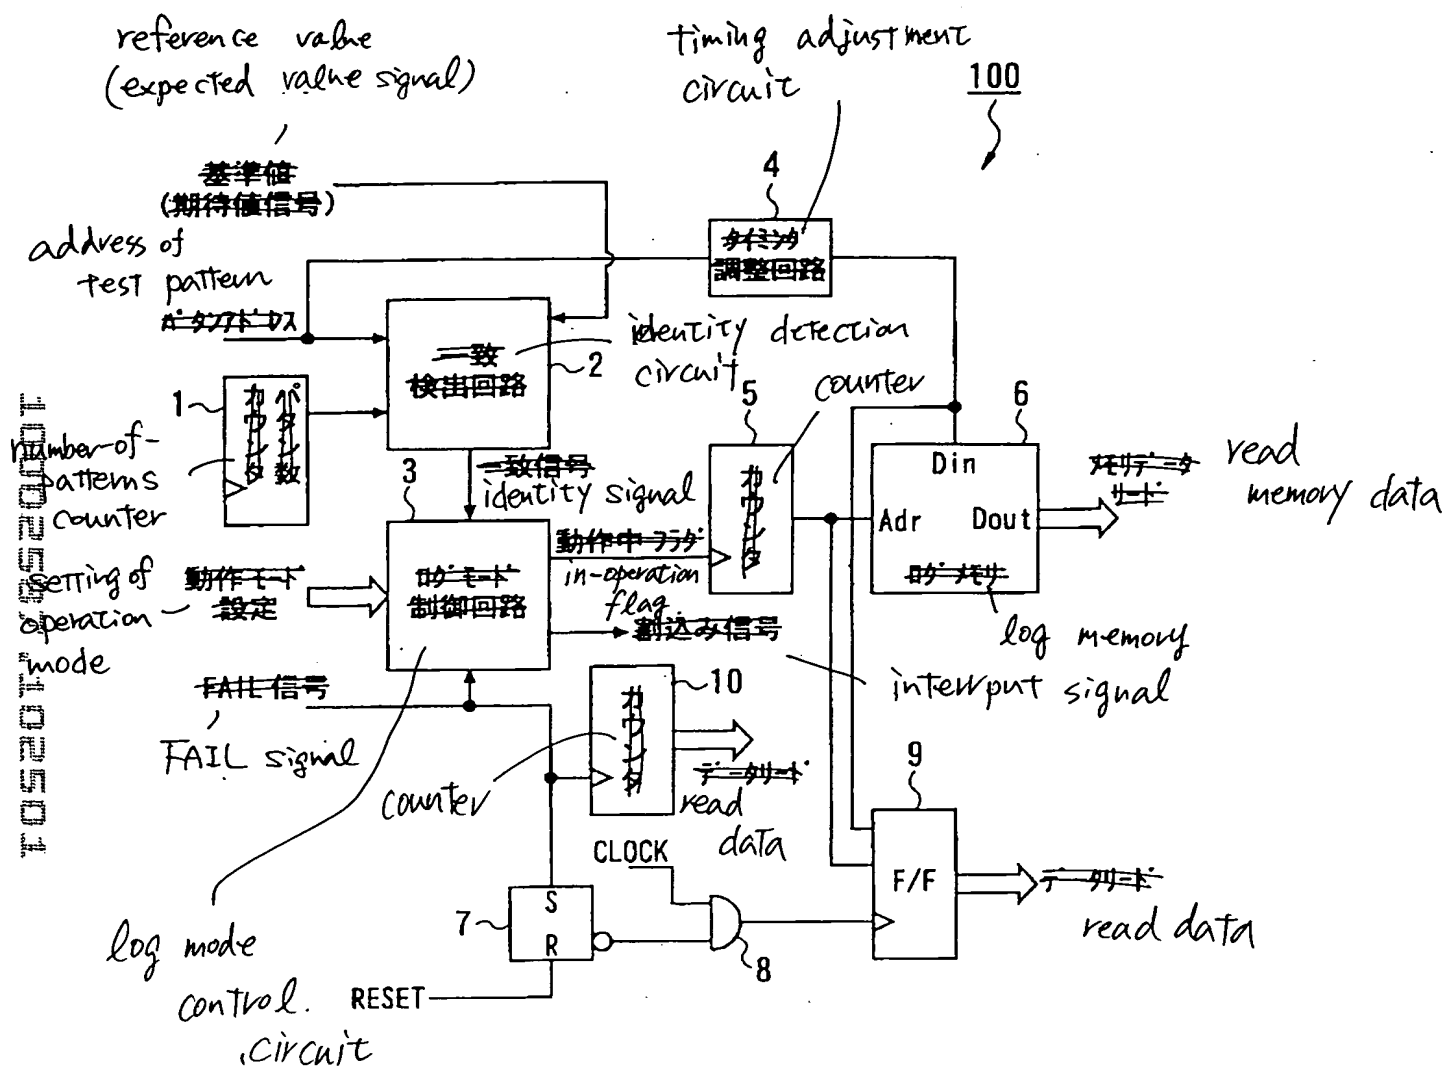 reference value
(expected value signal)
timing adjustment
circuit
100
基準値
(期待値信号)
4
タイミング
調整回路
address of
test pattern
パタンアドレス
一致
検出回路
2
identity detection
circuit
1
パタン数
カウンタ
number-of-
patterns
counter
3
一致信号
identity signal
5
counter
カウンタ
6
Din
Adr
Dout
ログメモリ
log memory
メモリデータ
リード
read
memory data
setting of
operation
mode
動作モード
設定
ログモード
制御回路
動作中フラグ
in-operation
flag
割込み信号
interrput signal
FAIL信号
FAIL signal
10
カウンタ
counter
データリード
read
data
9
F/F
データリード
read data
CLOCK
7
S
R
8
RESET
log mode
control.
circuit